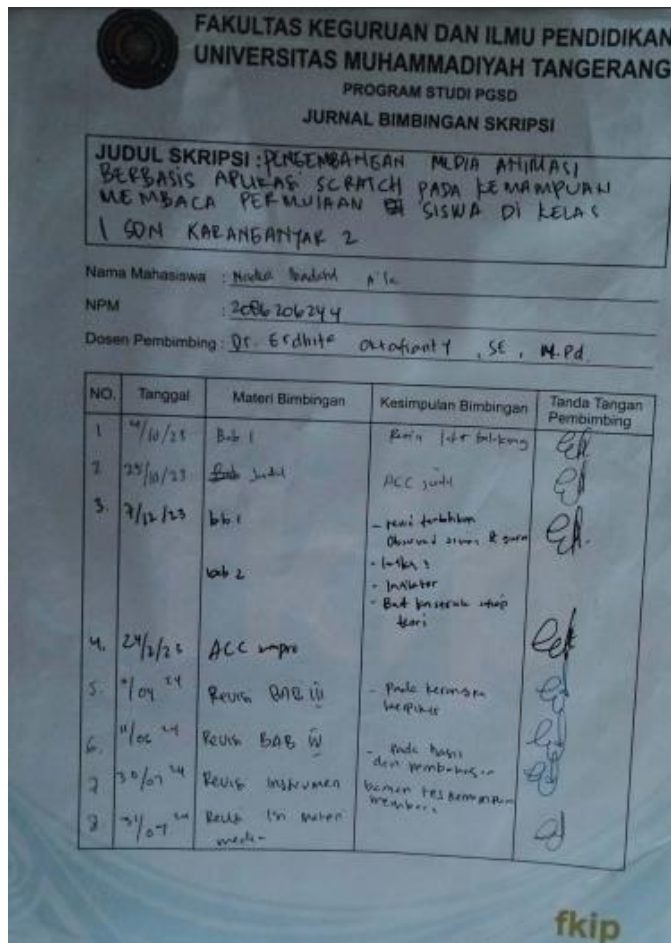 FAKULTAS KEGURUAN DAN ILMU PENDIDIKAN
UNIVERSITAS MUHAMMADIYAH TANGERANG
PROGRAM STUDI PGSD
JURNAL BIMBINGAN SKRIPSI
JUDUL SKRIPSI : PENGEMBANGAN MEDIA ANIMASI
BERBASIS APLIKASI SCRATCH PADA KEMAMPUAN
MEMBACA PERMULAAN SISWA DI KELAS
1 SDN KARANGANYAR 2
Nama Mahasiswa :
NPM : 2086206244
Dosen Pembimbing : Dr. Erdhita Oktafianty , SE , M.Pd.
NO. Tanggal Materi Bimbingan Kesimpulan Bimbingan Tanda Tangan
Pembimbing
1 /10/23 Bab 1 latar belakang
2 25/10/23 Judul ACC judul
3. 7/12/23 bab 1 - revisi tambahkan
Observasi siswa & guru
bab 2
- Indikator
teori
4. ACC sempro
5. /04 24 Revisi BAB III - Pada kerangka
berpikir
6. 24 Revisi BAB IV - Pada hasil
dan pembahasan
7 30/07 24 Revisi Instrumen
membaca
8 31/07 24 Revisi materi